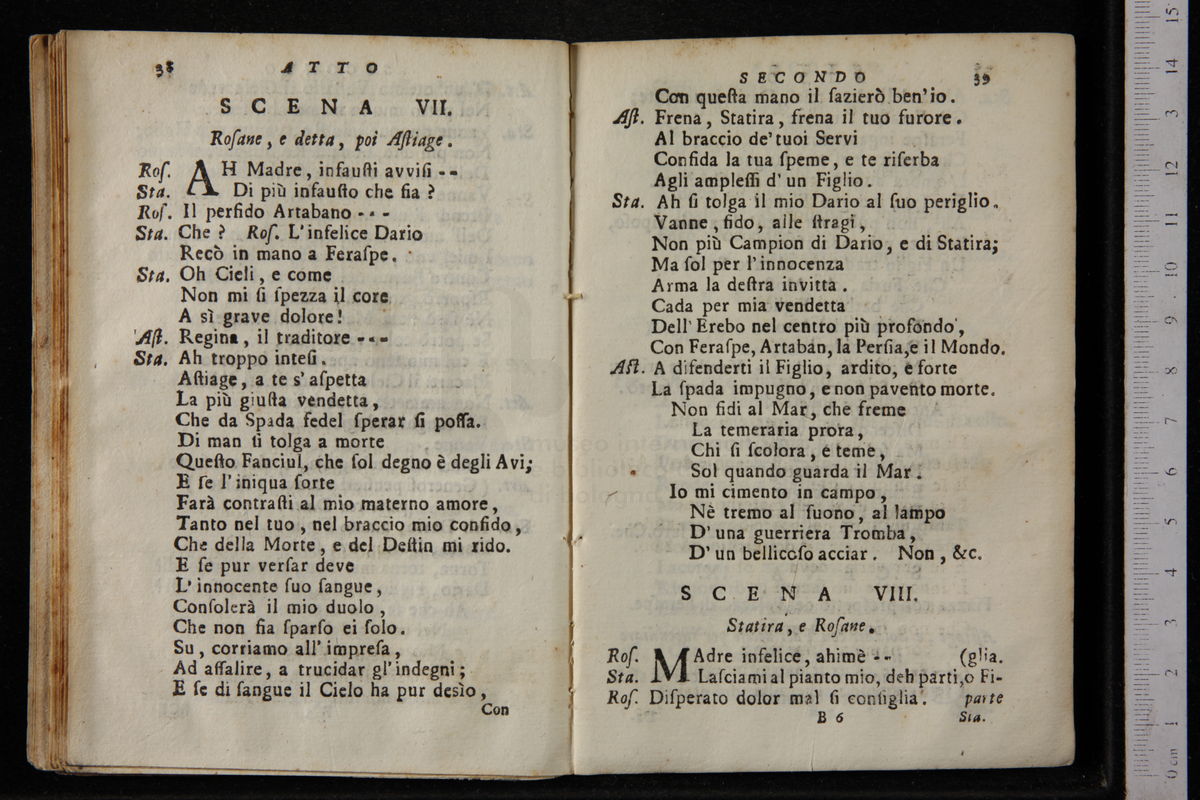 38 ATTO
SCENA VII.
Roſane, e detta, poi Aſtiage.
Roſ. AH Madre, infauſti avviſi --
Sta. Di più infauſto che ſia?
Roſ. Il perfido Artabano ---
Sta. Che? Roſ. L'infelice Dario
Recò in mano a Feraſpe.
Sta. Oh Cieli, e come
Non mi ſi ſpezza il core
A sì grave dolore!
Aſt. Regina, il traditore ---
Sta. Ah troppo inteſi.
Aſtiage, a te s'aſpetta
La più giuſta vendetta,
Che da Spada fedel ſperar ſi poſſa.
Di man ti tolga a morte
Queſto Fanciul, che ſol degno è degli Avi;
E ſe l'iniqua ſorte
Farà contraſti al mio materno amore,
Tanto nel tuo, nel braccio mio confido,
Che della Morte, e del Deſtin mi rido.
E ſe pur verſar deve
L'innocente ſuo ſangue,
Conſolerà il mio duolo,
Che non ſia ſparſo ei ſolo.
Su, corriamo all'impreſa,
Ad aſſalire, a trucidar gl'indegni;
E ſe di ſangue il Cielo ha pur desìo,
Con
SECONDO 39
Con queſta mano il ſazierò ben'io.
Aſt. Frena, Statira, frena il tuo furore.
Al braccio de'tuoi Servi
Confida la tua ſpeme, e te riſerba
Agli ampleſſi d'un Figlio.
Sta. Ah ſi tolga il mio Dario al ſuo periglio.
Vanne, fido, alle ſtragi,
Non più Campion di Dario, e di Statira;
Ma ſol per l'innocenza
Arma la deſtra invitta.
Cada per mia vendetta
Dell'Erebo nel centro più profondo,
Con Feraſpe, Artaban, la Perſia, e il Mondo.
Aſt. A difenderti il Figlio, ardito, e forte
La ſpada impugno, e non pavento morte.
Non fidi al Mar, che freme
La temeraria prora,
Chi ſi ſcolora, e teme,
Sol quando guarda il Mar.
Io mi cimento in campo,
Nè tremo al ſuono, al lampo
D'una guerriera Tromba,
D'un bellicoſo acciar. Non, &c.
SCENA VIII.
Statira, e Roſane.
Roſ. MAdre infelice, ahimè -- (glia.
Sta. Laſciami al pianto mio, deh parti, o Fi-
Roſ. Diſperato dolor mal ſi conſiglia. parte
B 6 Sta.
museo
di bologna
0 cm 1 2 3 4 5 6 7 8 9 10 11 12 13 14 15